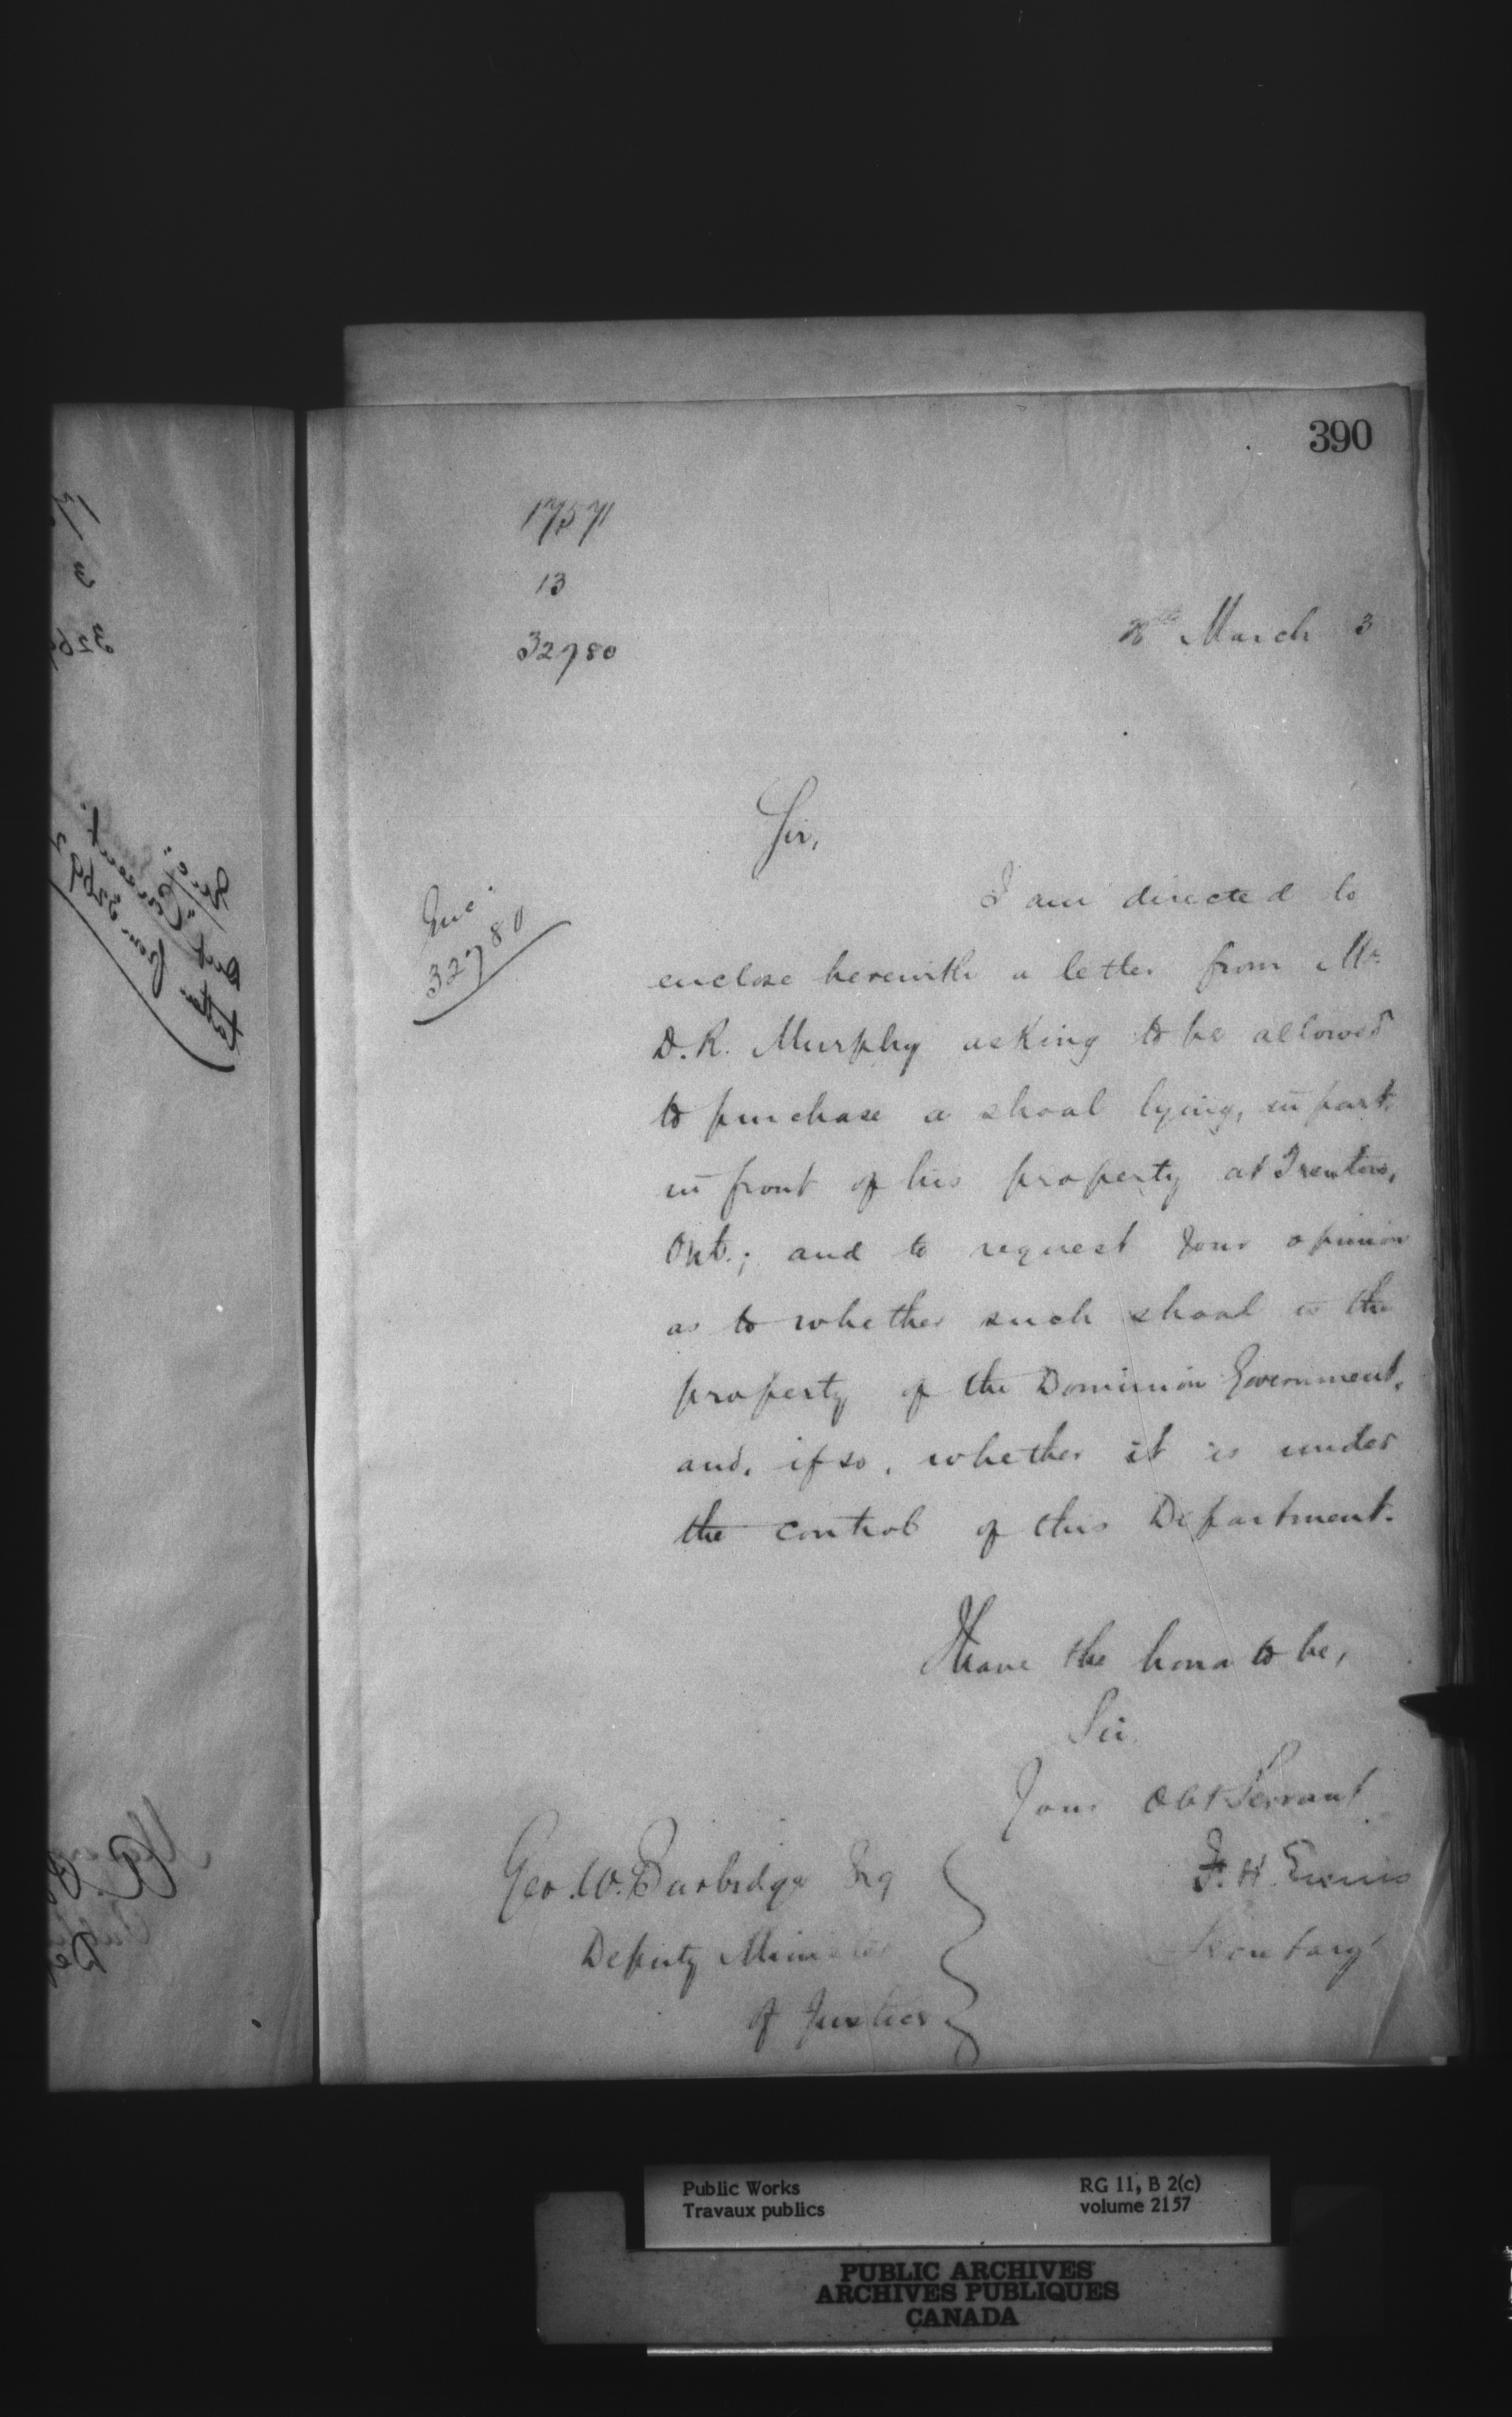 390
17571
13
32780
8th March 3
Sir,
Enc.
32780
I am directed to
enclose herewith a letter from Mr.
D. R. Murphy asking to be allowed
to purchase a shoal lying, in part,
in front of his property at Trenton,
Ont.; and to request your opinion
as to whether such shoal is the
property of the Dominion Government,
and, if so, whether it is under
the control of this Department.
I have the honor to be,
Sir
Your Obt Servant
F. H. Ennis
Secretary
Geo. W. Burbidge Esq
Deputy Minister
of Justice
Public Works
Travaux publics
RG 11, B 2(c)
volume 2157
PUBLIC ARCHIVES
ARCHIVES PUBLIQUES
CANADA